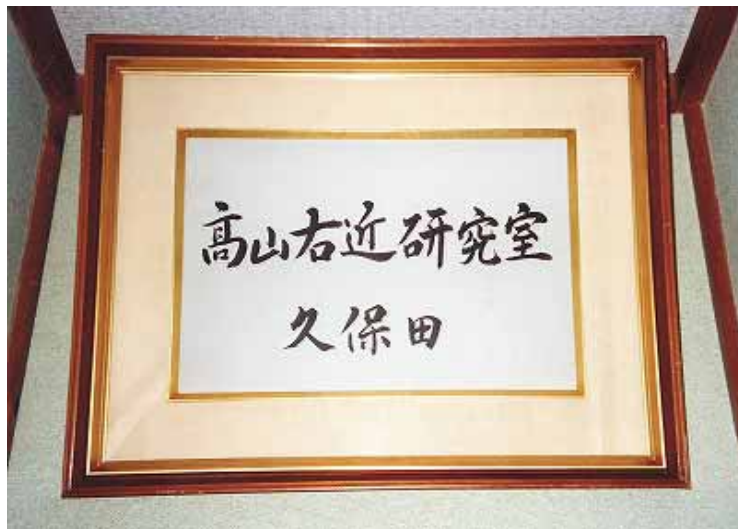 髙山右近研究室
久保田